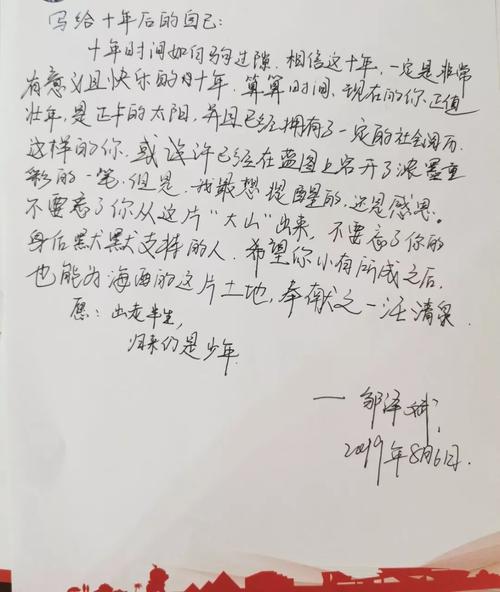 写给十年后的自己:
十年时间如白驹过隙、相信这十年,一定是非常
有意义且快乐的十年。算算时间、现在的你正值
壮年,是正午的太阳,并且已经拥有了一定的社会阅历
这样的你,或许已经在蓝图上召开了浓墨重
彩的一笔,但是,我最想提醒的,还是感恩。
不要忘了你从这片“大山”出来,不要忘了你的
身后默默支持的人,希望你小有所成之后,
也能为海西的这片土地,奉献之一汪清泉
愿:出走半生,
归来仍是少年
——邹泽斌
2019年8月6日.